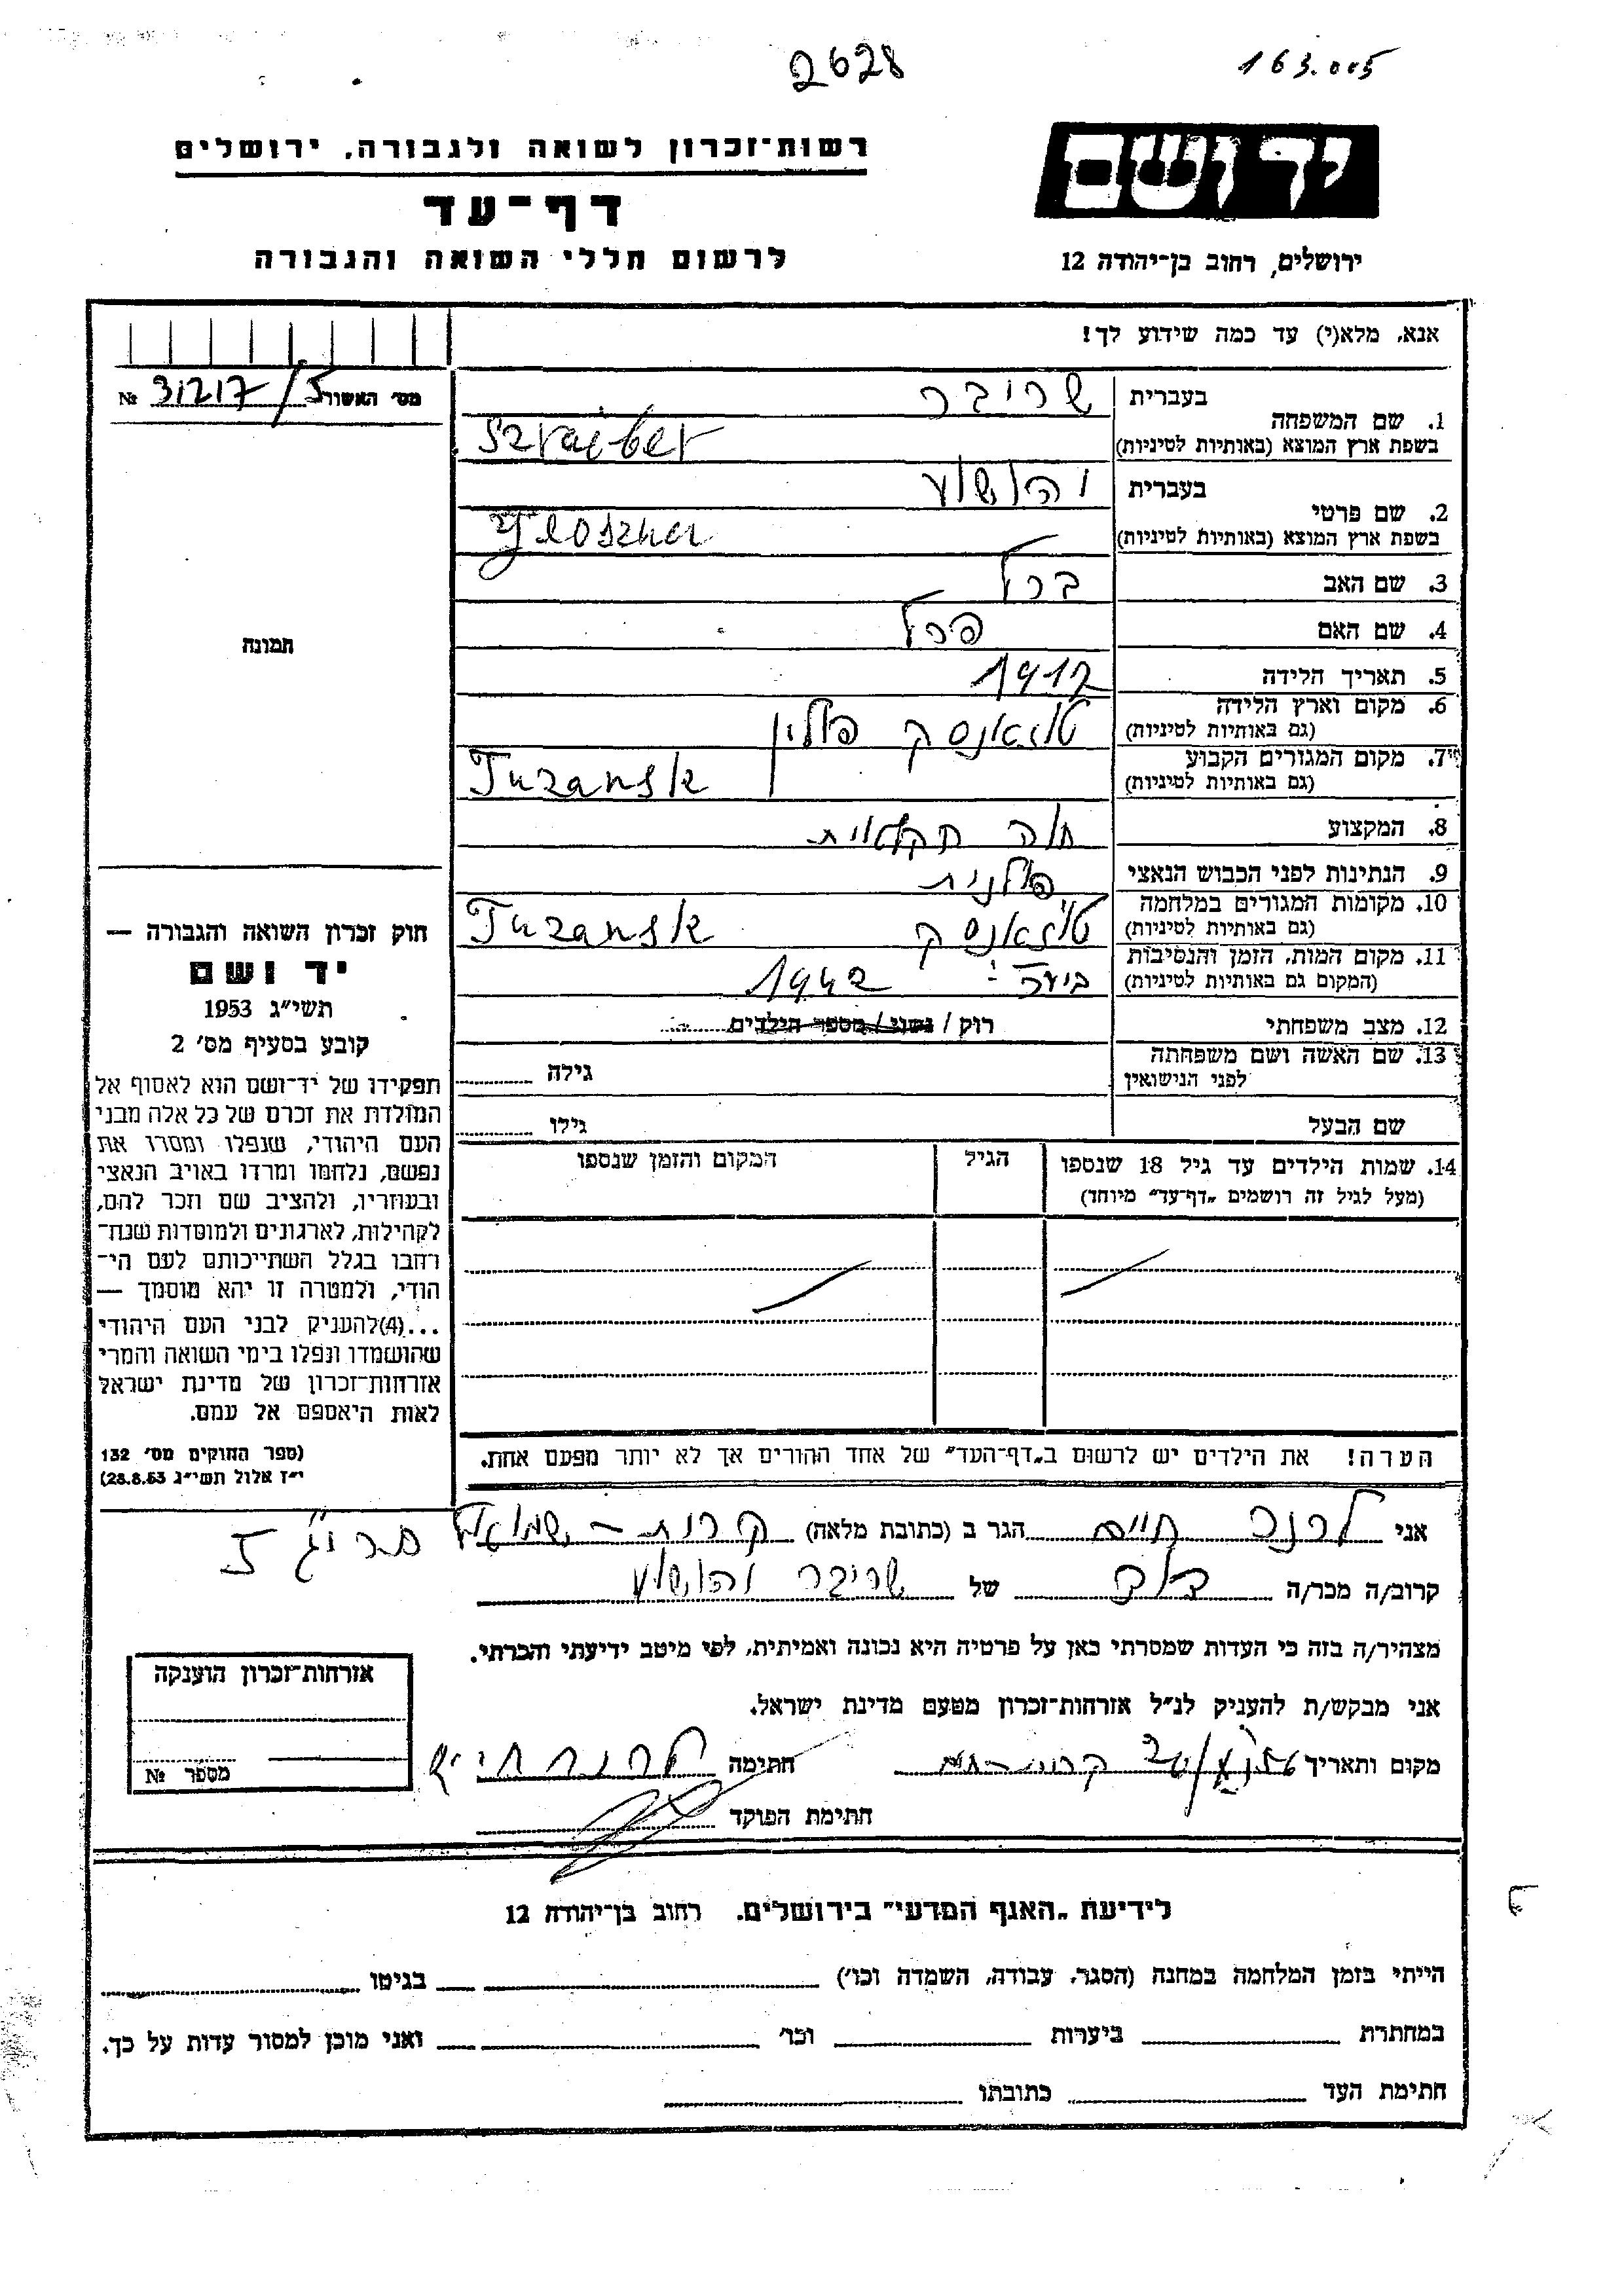 2628
163.005
ידושם
רשות־זכרון לשואה ולגבורה, ירושלים
דף־עד
לרשום חללי השואה והגבורה
ירושלים, רחוב בן־יהודה 12
אנא, מלא(י) עד כמה שידוע לך!
מס׳ האשור 31217/5 №
בעברית שרייבר
1. שם המשפחה
בשפת ארץ המוצא (באותיות לטיניות) Szrajber
בעברית יהושוע
2. שם פרטי
בשפת ארץ המוצא (באותיות לטיניות)
3. שם האב ברל
4. שם האם פרל
5. תאריך הלידה 1917
6. מקום וארץ הלידה טוזאנסק פולין
(גם באותיות לטיניות)
7. מקום המגורים הקבוע Tuzansk
(גם באותיות לטיניות)
8. המקצוע
9. הנתינות לפני הכבוש הנאצי פולנית
10. מקומות המגורים במלחמה טוזאנסק Tuzansk
(גם באותיות לטיניות)
11. מקום המות, הזמן והנסיבות 1942
(המקום גם באותיות לטיניות)
12. מצב משפחתי רוק / נשוי / מספר הילדים
13. שם האשה ושם משפחתה
לפני הנישואין גילה
שם הבעל גילו
14. שמות הילדים עד גיל 18 שנספו הגיל המקום והזמן שנספו
(מעל לגיל זה רושמים „דף־עד״ מיוחד)
הערה! את הילדים יש לרשום ב„דף־העד״ של אחד ההורים אך לא יותר מפעם אחת.
תמונה
חוק זכרון השואה והגבורה —
יד ושם
תשי״ג 1953
קובע בסעיף מס׳ 2
תפקידו של יד־ושם הוא לאסוף אל
המולדת את זכרם של כל אלה מבני
העם היהודי, שנפלו ומסרו את
נפשם, נלחמו ומרדו באויב הנאצי
ובעוזריו, ולהציב שם וזכר להם,
לקהילות, לארגונים ולמוסדות שנח־
רבו בגלל השתייכותם לעם הי־
הודי, ולמטרה זו יהא מוסמך —
...(4)להעניק לבני העם היהודי
שהושמדו ונפלו בימי השואה והמרי
אזרחות־זכרון של מדינת ישראל
לאות היאספם אל עמם.
(ספר החוקים מס׳ 132
י״ז אלול תשי״ג 28.8.53)
אני לרנר חיים הגר ב (כתובת מלאה) קרית־שמואל
קרוב/ה מכר/ה דוד של שרייבר יהושוע
מצהיר/ה בזה כי העדות שמסרתי כאן על פרטיה היא נכונה ואמיתית, לפי מיטב ידיעתי והכרתי.
אני מבקש/ת להעניק לנ״ל אזרחות־זכרון מטעם מדינת ישראל.
מקום ותאריך חתימה לרנר חיים
חתימת הפוקד
אזרחות־זכרון הוענקה
מספר №
לידיעת „האגף המדעי״ בירושלים, רחוב בן־יהודה 12
הייתי בזמן המלחמה במחנה (הסגר, עבודה, השמדה וכו׳) בגיטו
במחתרת ביערות וכו׳ ואני מוכן למסור עדות על כך.
חתימת העד כתובתו